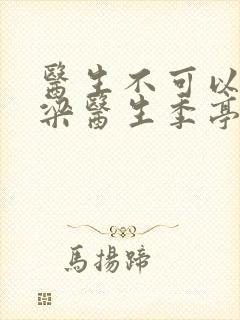 醫生不可以
梁醫生季亭
馬揚蹄